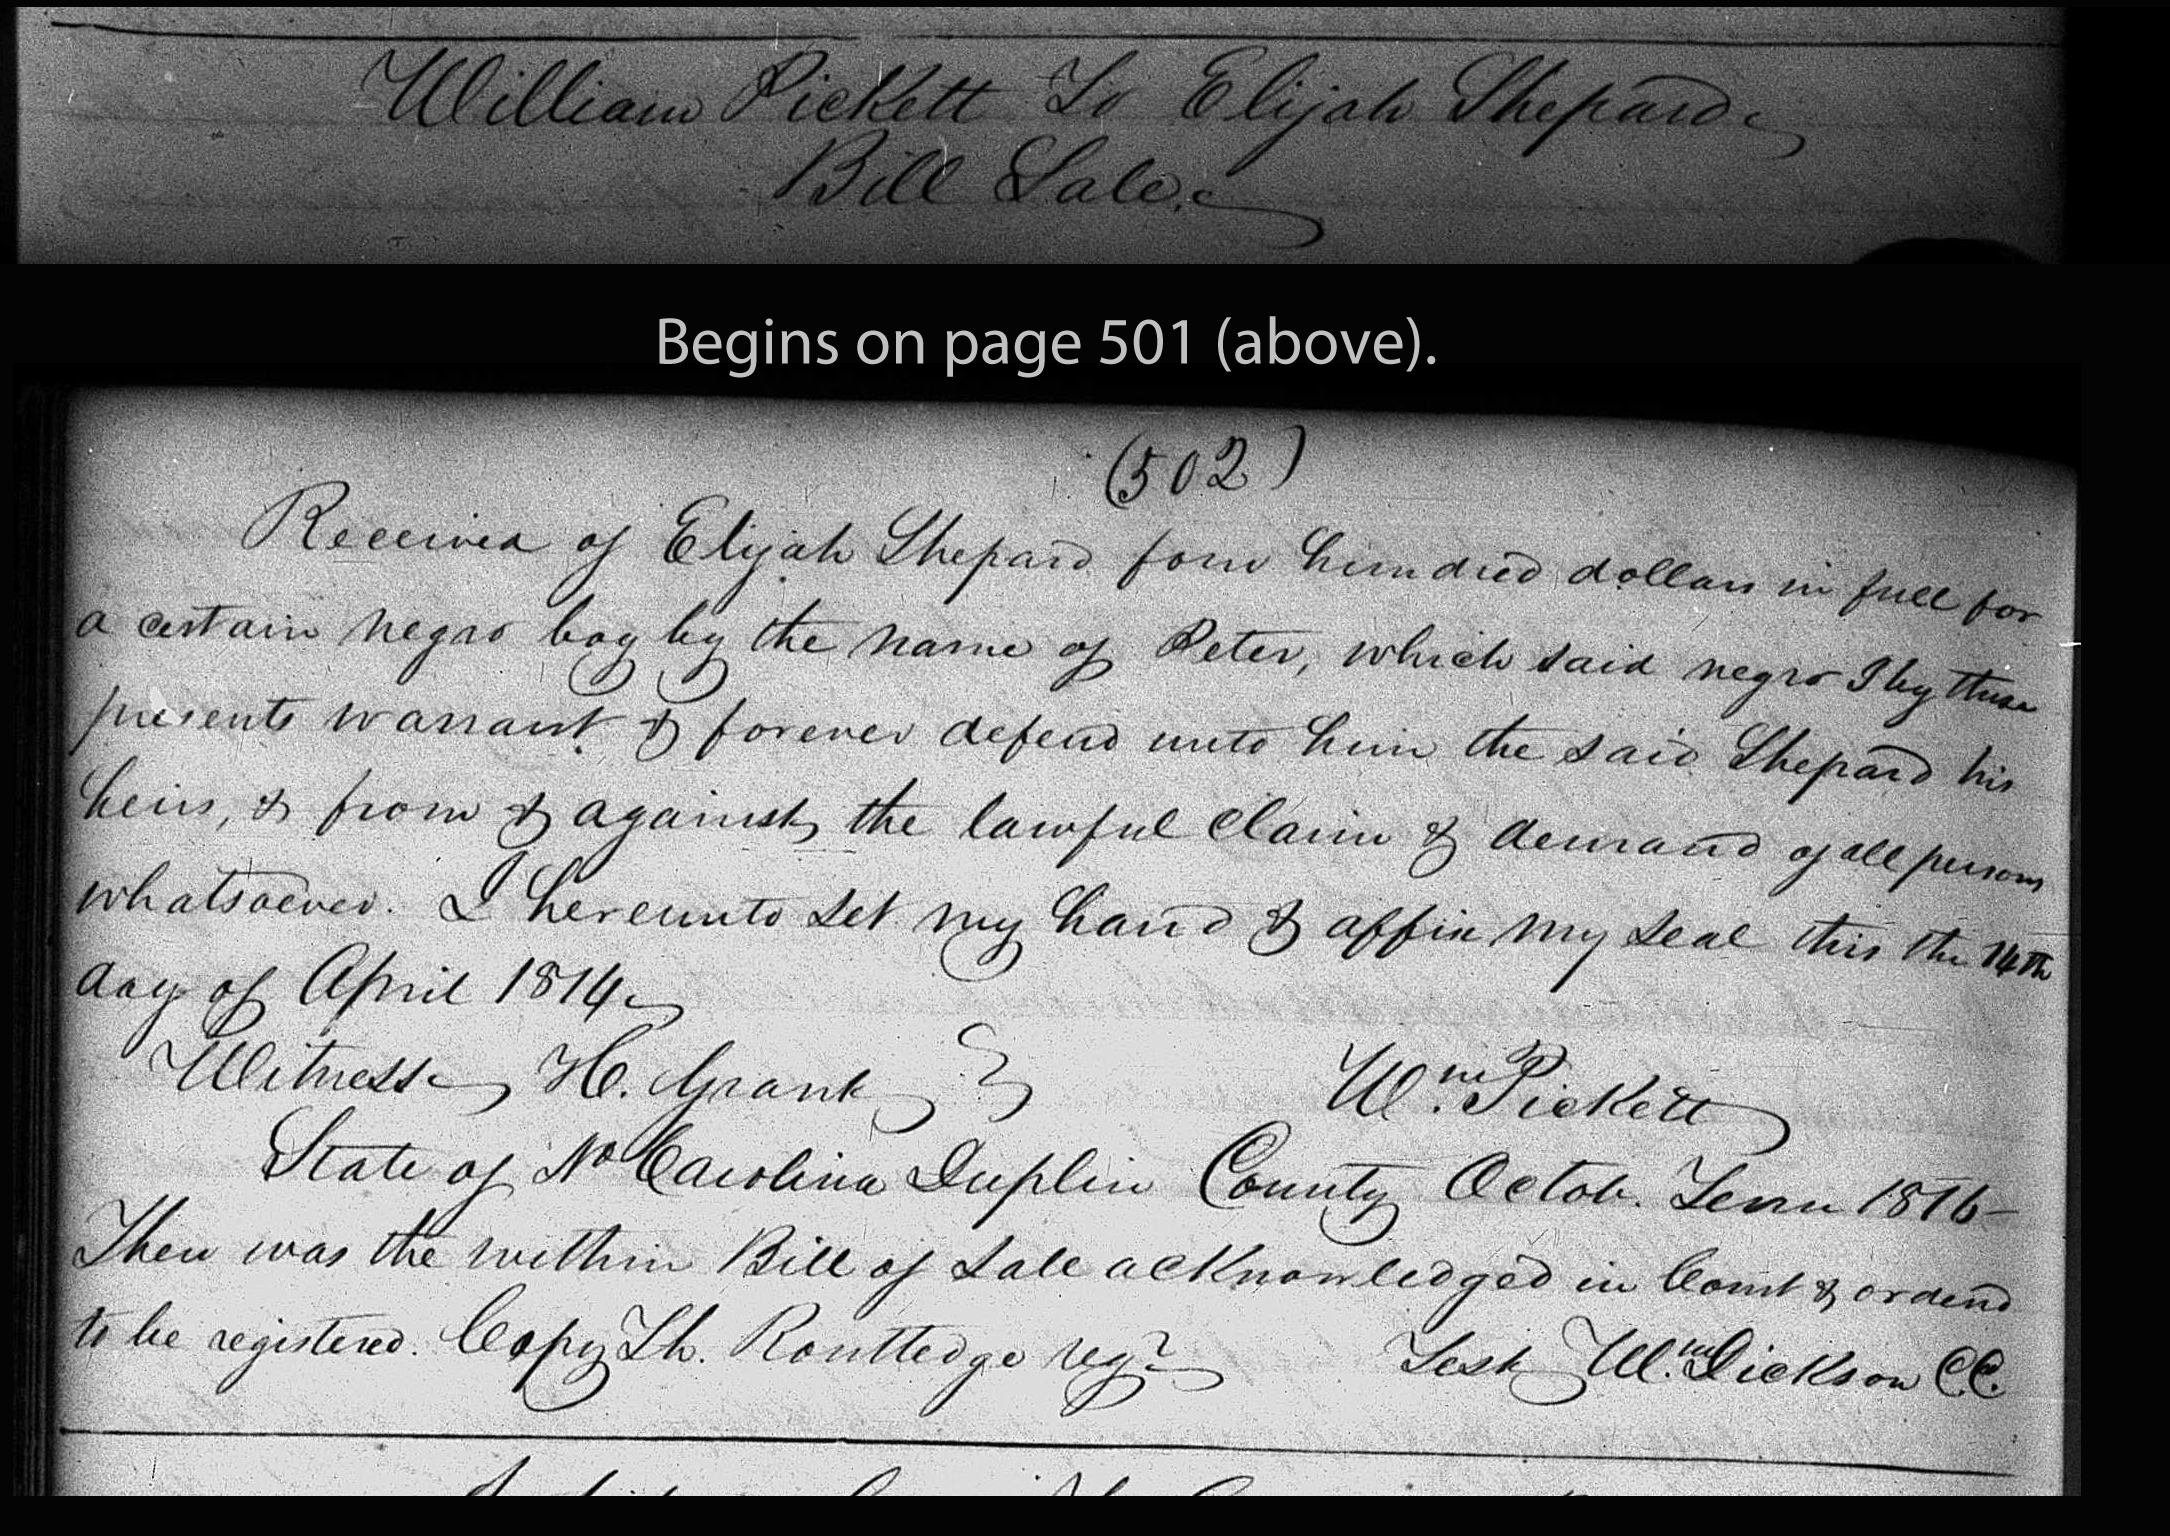 William Pickett To Elijah Shepard
Bill Sale.
Begins on page 501 (above).
(502)
Received of Elijah Shepard four hundred dollars in full for
a certain negro boy by the name of Peter, which said negro I by these
presents warrant & forever defend unto him the said Shepard his
heirs, & from & against the lawful claim & demand of all persons
whatsoever. I hereunto set my hand & affix my seal this the 14th
day of April 1814
Witness H. Grant Wm. Pickett
State of No Carolina Duplin County Octob. Term 1816
Then was the within Bill of Sale acknowledged in Court & orderd
to be registered. Copy Th. Routledge regr Test Wm. Dickson CC.